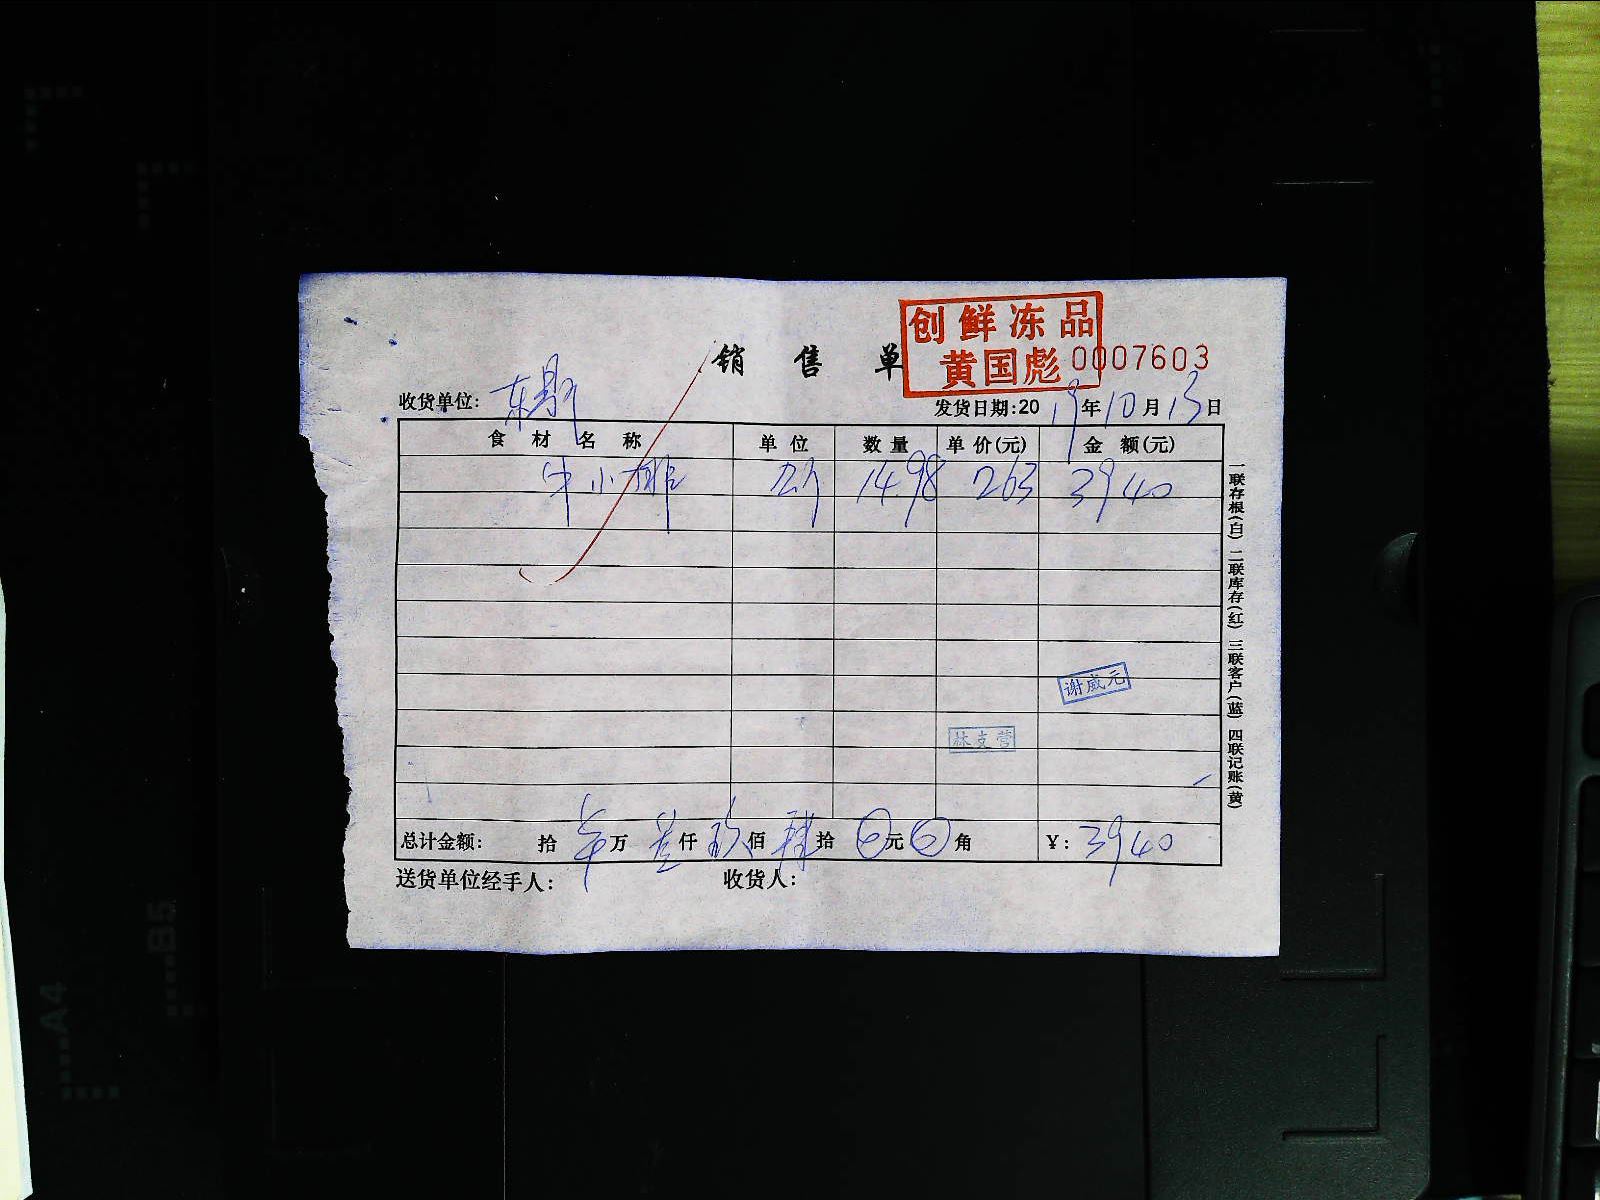 创鲜冻品
黄国彪
销售单 0007603
收货单位: 东 发货日期:20 19 年 10 月 13 日
食材名称 单位 数量 单价(元) 金额(元)
牛小排 14.98 263 3940
谢威元
林支营
总计金额: 拾 万 叁仟 玖佰 肆拾 0元 0角 ¥: 3940
送货单位经手人: 收货人:
一联存根(白) 二联库存(红) 三联客户(蓝) 四联记账(黄)
A4
B5